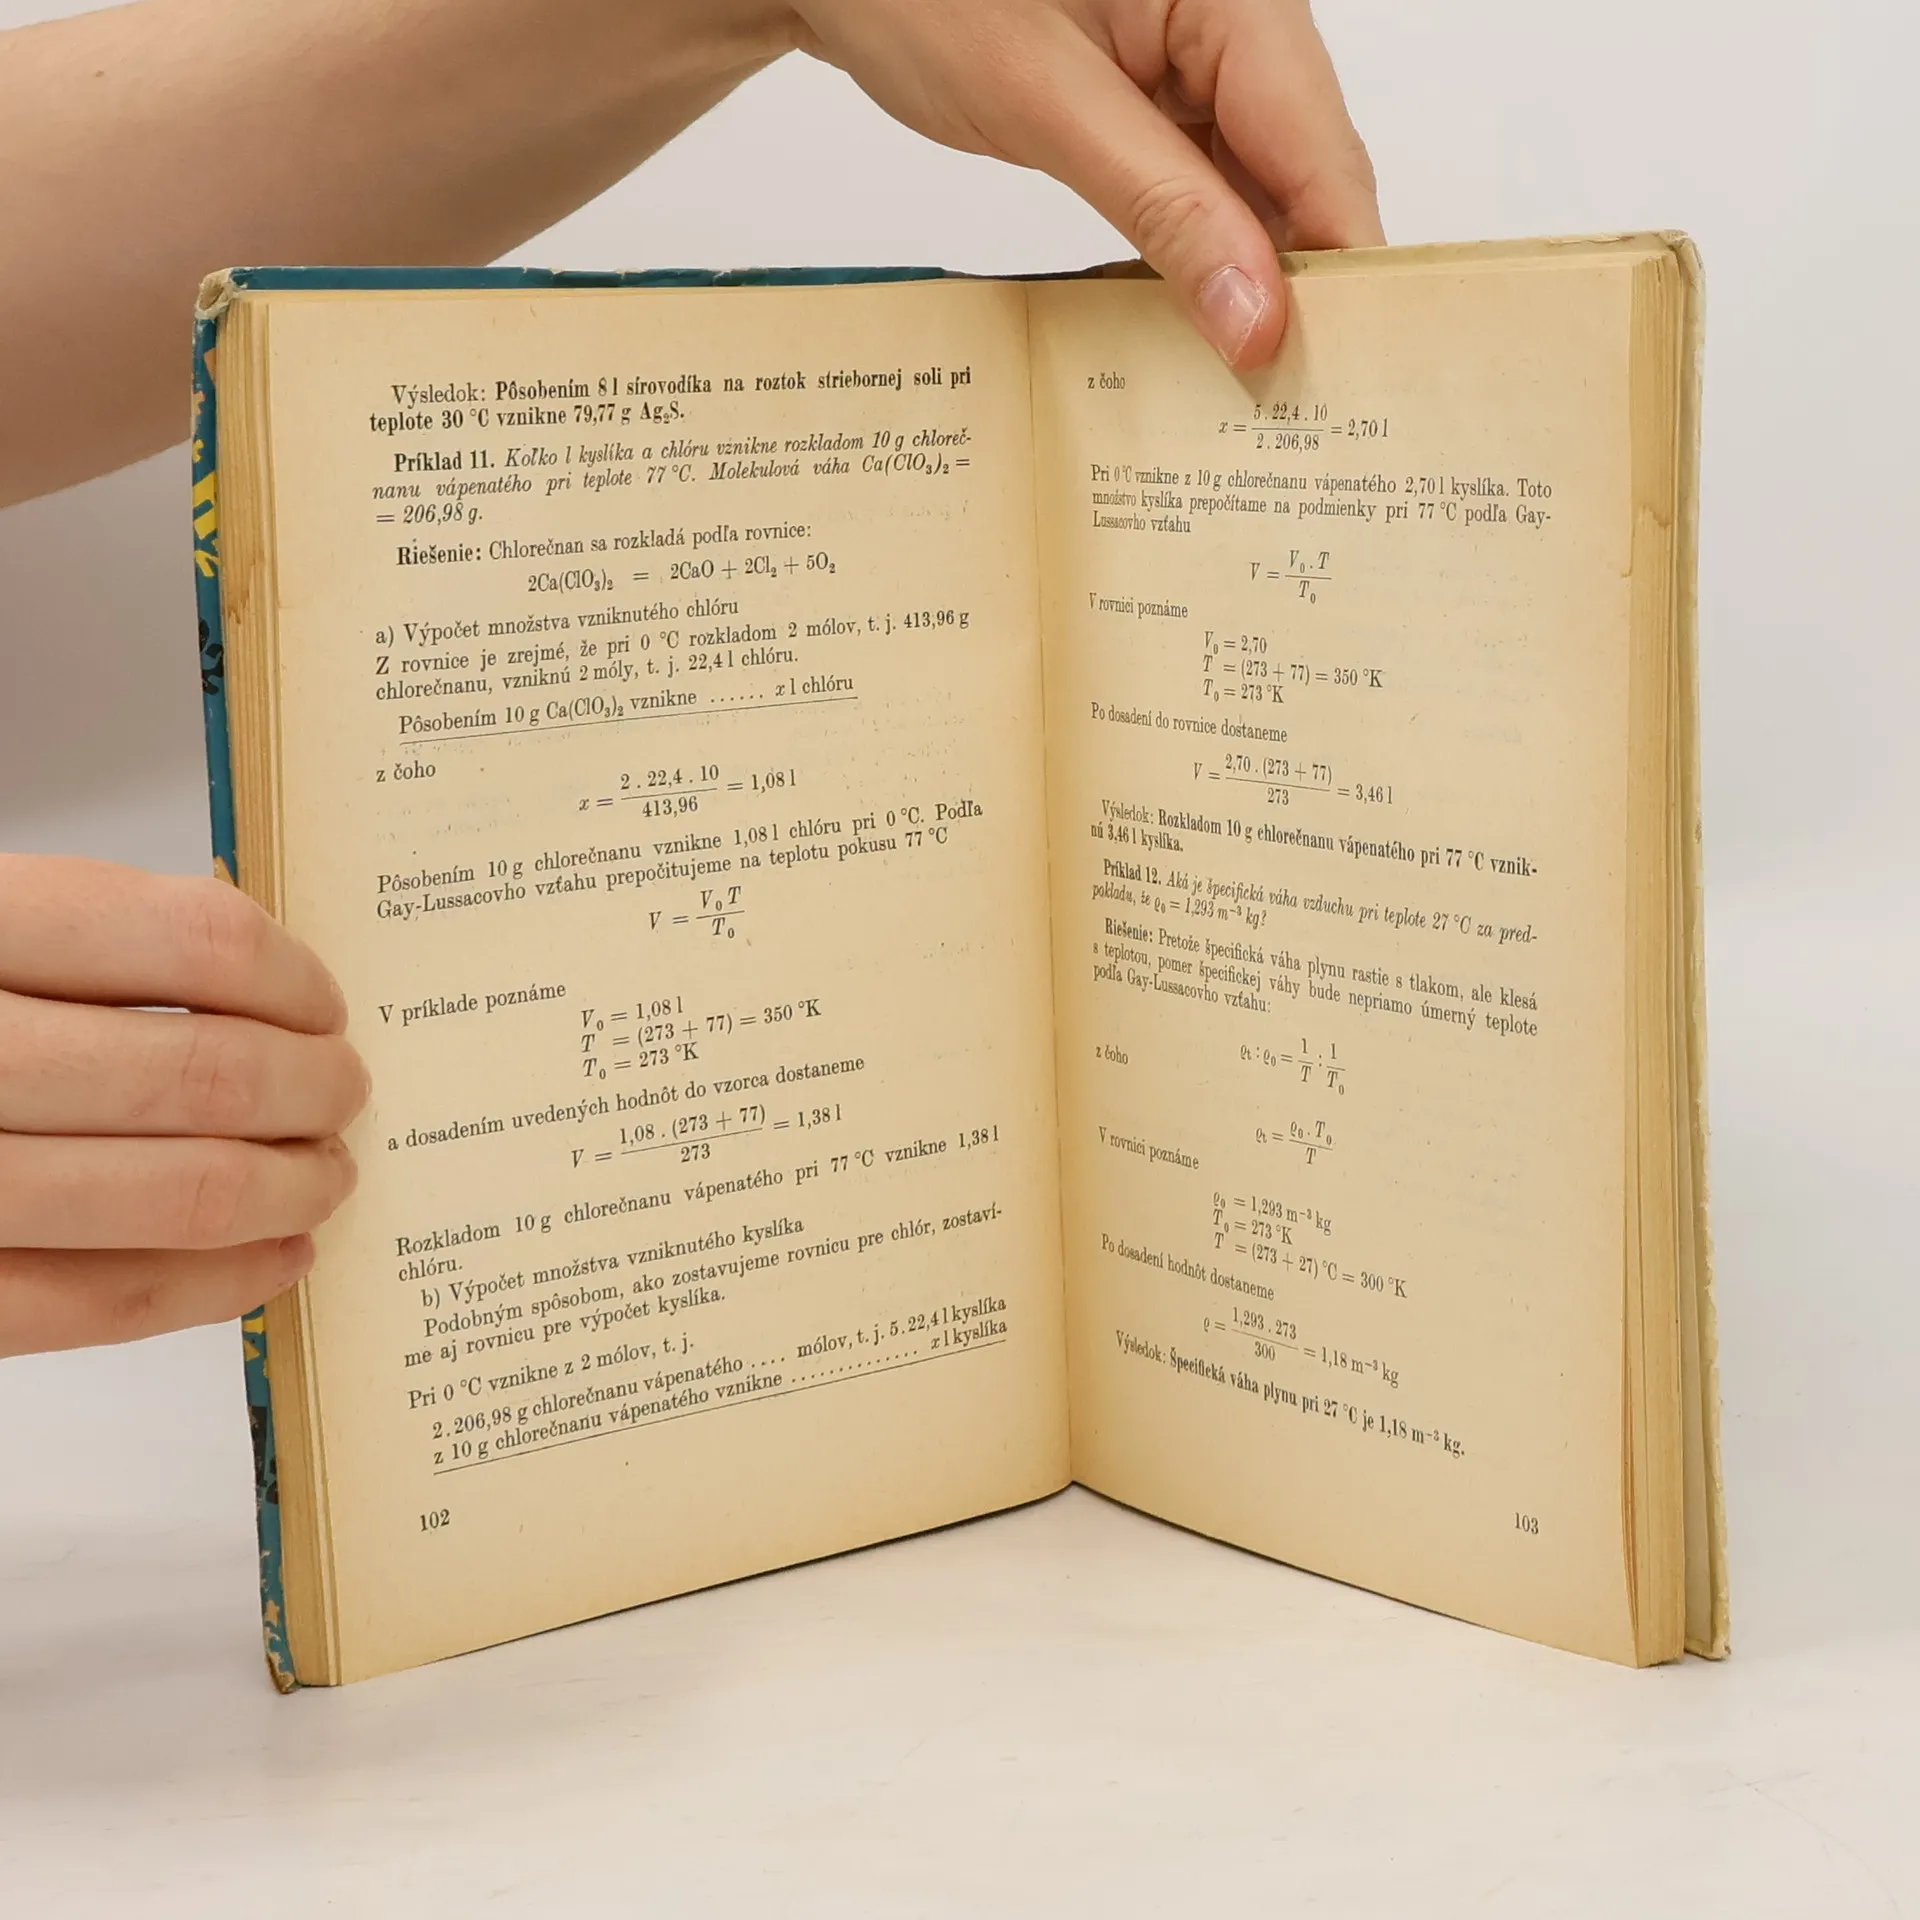 Výsledok: Pôsobením 8 l sírovodíka na roztok striebornej soli pri
teplote 30 °C vznikne 79,77 g Ag₂S.
Príklad 11. Koľko l kyslíka a chlóru vznikne rozkladom 10 g chloreč-
nanu vápenatého pri teplote 77 °C. Molekulová váha Ca(ClO₃)₂ =
= 206,98 g.
Riešenie: Chlorečnan sa rozkladá podľa rovnice:
2Ca(ClO₃)₂ = 2CaO + 2Cl₂ + 5O₂
a) Výpočet množstva vzniknutého chlóru
Z rovnice je zrejmé, že pri 0 °C rozkladom 2 mólov, t. j. 413,96 g
chlorečnanu, vzniknú 2 móly, t. j. 22,4 l chlóru.
Pôsobením 10 g Ca(ClO₃)₂ vznikne ...... x l chlóru
z čoho
x = 2 . 22,4 . 10 / 413,96 = 1,08 l
Pôsobením 10 g chlorečnanu vznikne 1,08 l chlóru pri 0 °C. Podľa
Gay-Lussacovho vzťahu prepočitujeme na teplotu pokusu 77 °C
V = V₀ T / T₀
V príklade poznáme
V₀ = 1,08 l
T = (273 + 77) = 350 °K
T₀ = 273 °K
a dosadením uvedených hodnôt do vzorca dostaneme
V = 1,08 . (273 + 77) / 273 = 1,38 l
Rozkladom 10 g chlorečnanu vápenatého pri 77 °C vznikne 1,38 l
chlóru.
b) Výpočet množstva vzniknutého kyslíka
Podobným spôsobom, ako zostavujeme rovnicu pre chlór, zostaví-
me aj rovnicu pre výpočet kyslíka.
Pri 0 °C vznikne z 2 mólov, t. j.
2 . 206,98 g chlorečnanu vápenatého .... mólov, t. j. 5 . 22,4 l kyslíka
z 10 g chlorečnanu vápenatého vznikne ............. x l kyslíka
102
z čoho
x = 5 . 22,4 . 10 / 2 . 206,98 = 2,70 l
Pri 0 °C vznikne z 10 g chlorečnanu vápenatého 2,70 l kyslíka. Toto
množstvo kyslíka prepočítame na podmienky pri 77 °C podľa Gay-
Lussacovho vzťahu
V = V₀ . T / T₀
V rovnici poznáme
V₀ = 2,70
T = (273 + 77) = 350 °K
T₀ = 273 °K
Po dosadení do rovnice dostaneme
V = 2,70 . (273 + 77) / 273 = 3,46 l
Výsledok: Rozkladom 10 g chlorečnanu vápenatého pri 77 °C vznik-
nú 3,46 l kyslíka.
Príklad 12. Aká je špecifická váha vzduchu pri teplote 27 °C za pred-
pokladu, že ϱ₀ = 1,293 m⁻³ kg?
Riešenie: Pretože špecifická váha plynu rastie s tlakom, ale klesá
s teplotou, pomer špecifickej váhy bude nepriamo úmerný teplote
podľa Gay-Lussacovho vzťahu:
ϱt : ϱ₀ = 1/T : 1/T₀
z čoho
ϱt = ϱ₀ . T₀ / T
V rovnici poznáme
ϱ₀ = 1,293 m⁻³ kg
T₀ = 273 °K
T = (273 + 27) °C = 300 °K
Po dosadení hodnôt dostaneme
ϱ = 1,293 . 273 / 300 = 1,18 m⁻³ kg
Výsledok: Špecifická váha plynu pri 27 °C je 1,18 m⁻³ kg.
103